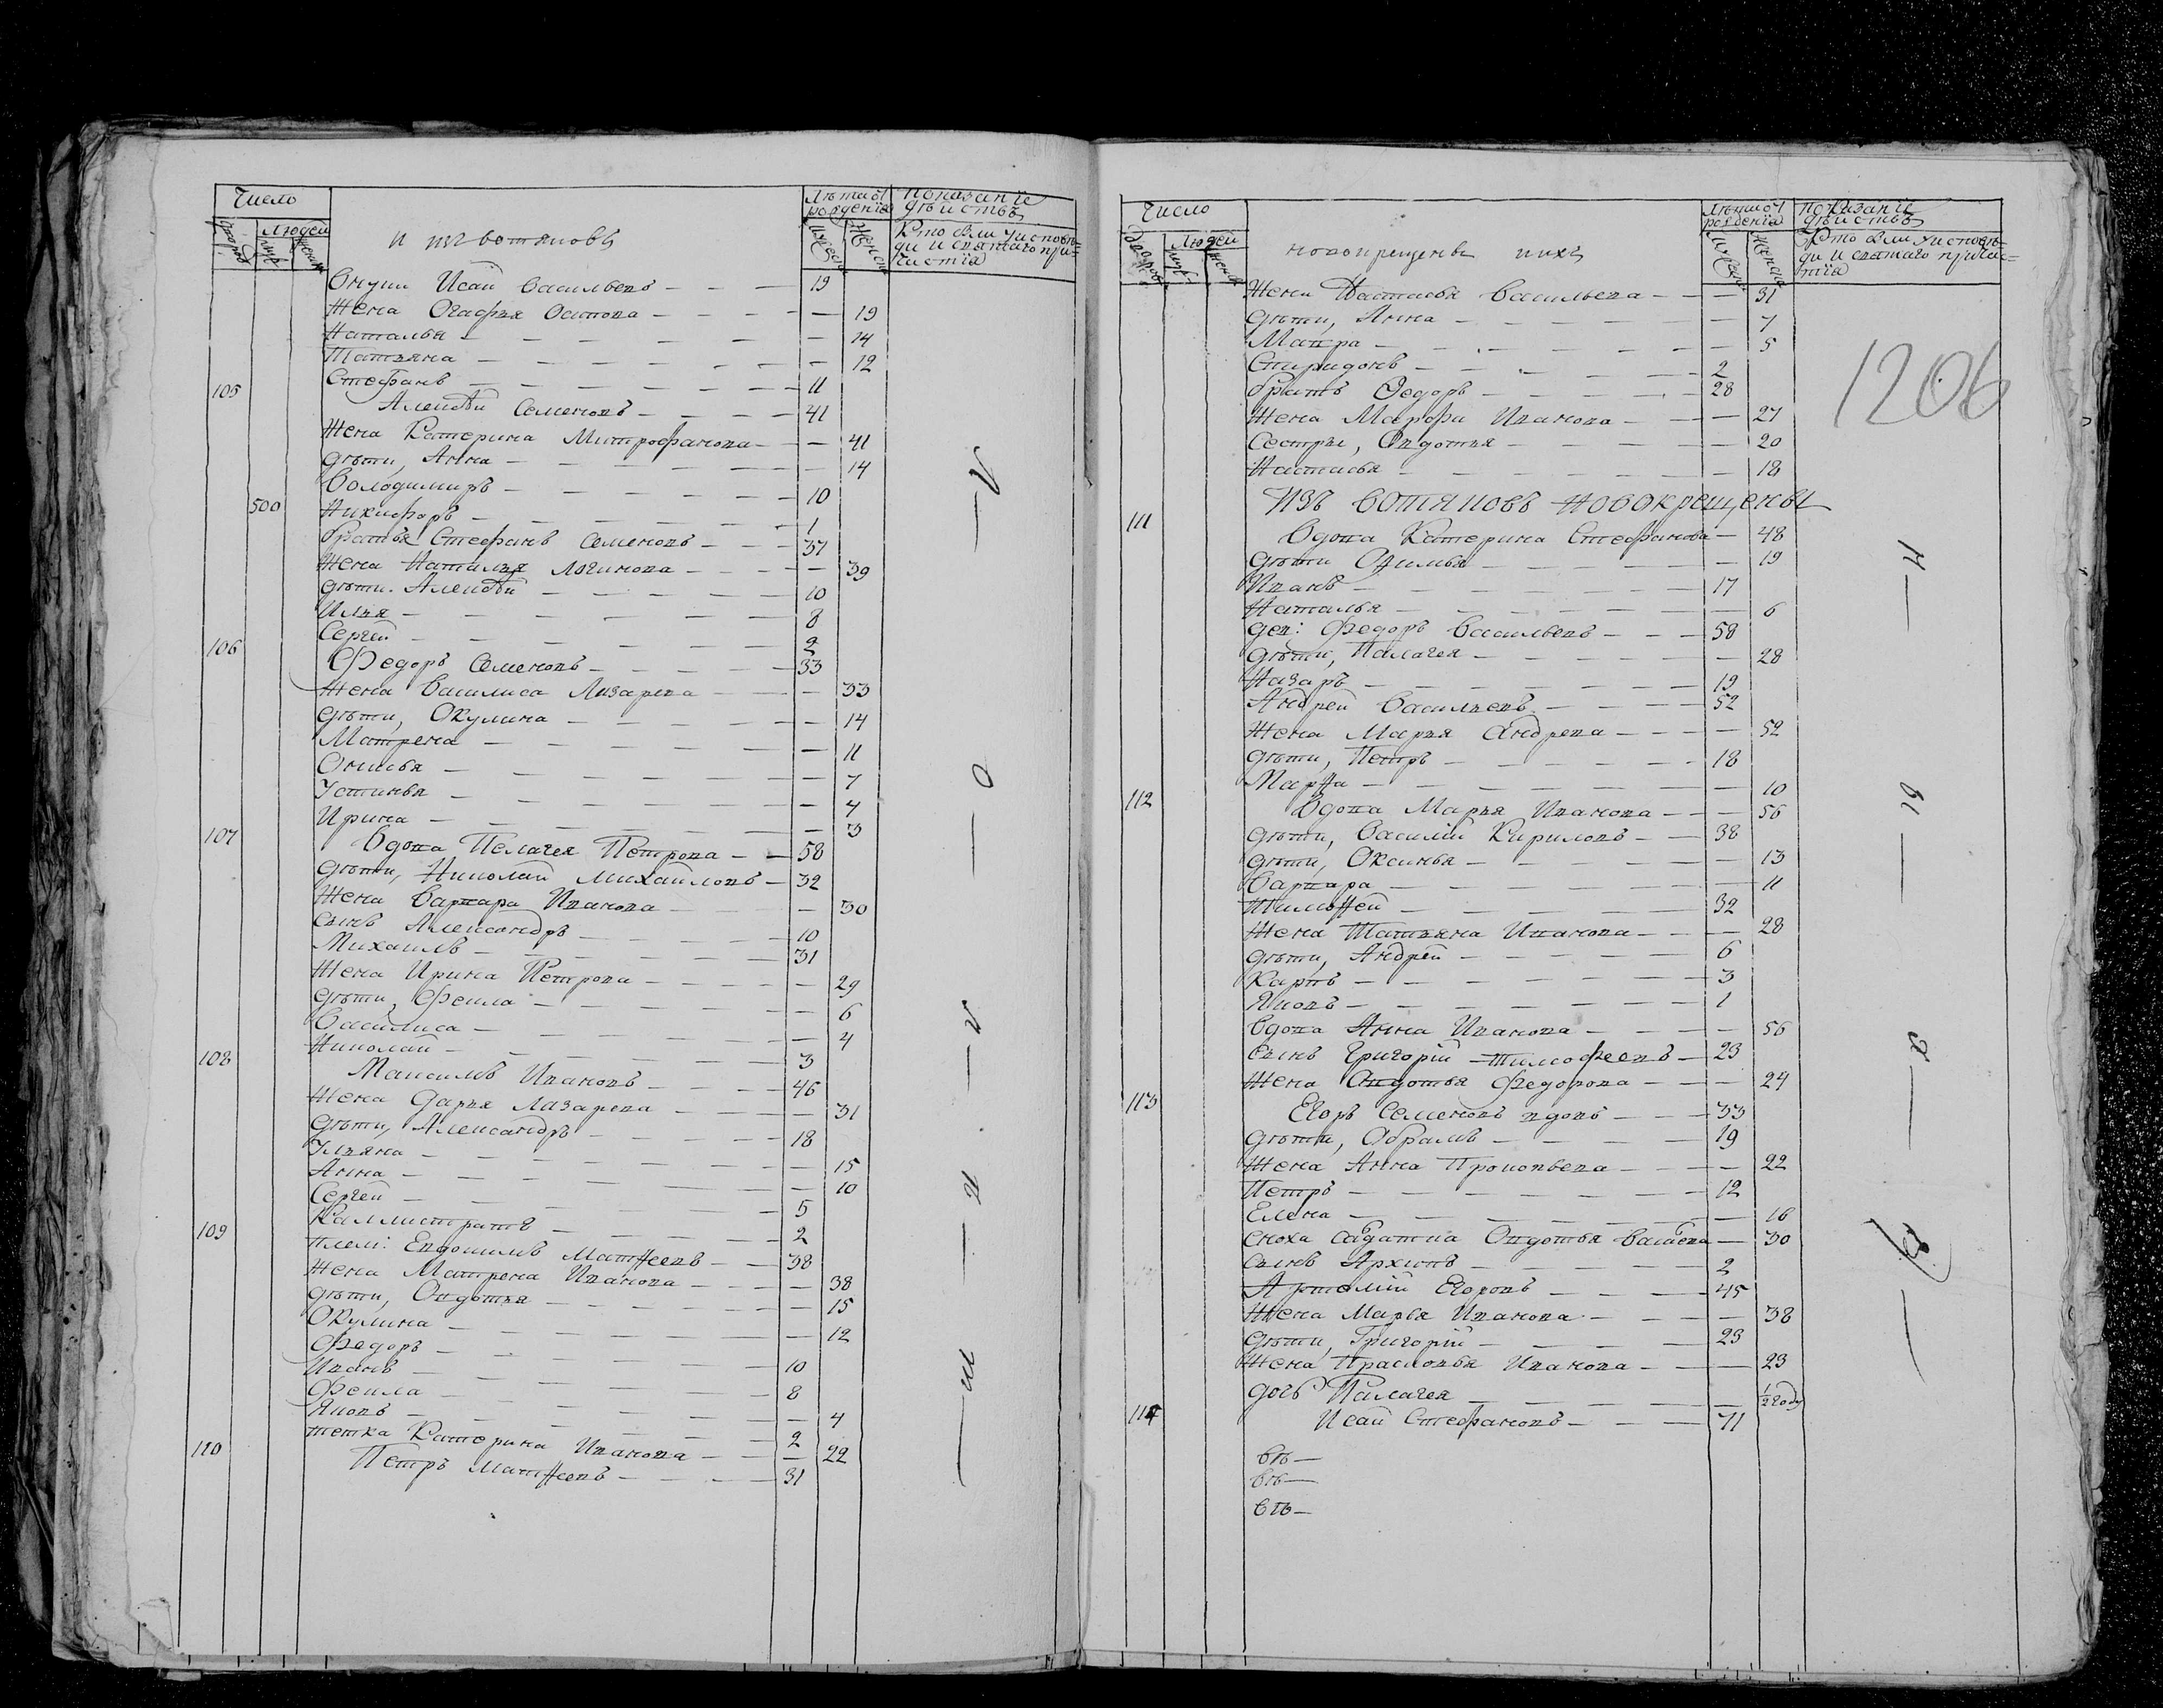 Число
Людей
и изъ вотяковъ
Лѣта от рождения
Показание дѣйствъ
Кто были у исповѣ-
ди и святаго при-
частїа
Внуки Исай Васильевъ — — — 19
Жена Огафия Осипова — — — — — 19
Наталья — — — — — — 14
Татияна — — — — — — 12
105 Стефанъ — — — — — — 11
Алексѣй Семеновъ — — — — 41
Жена Катерина Митрофанова — — 41
дѣти, Анна — — — — — — 14
Володимиръ — — — — — — 10
500 Никифоръ — — — — — — 1
братья Стефанъ Семеновъ — — — 37
Жена Наталия Логинова — — — — — 39
дѣти. Алексѣй — — — — — 10
Илия — — — — — — 8
Сергей — — — — — — 2
106 Федоръ Семеновъ — — — — — 33
Жена Василиса Лазарева — — — 33
дѣти, Окулина — — — — — 14
Матрена — — — — — — 11
Онисья — — — — — — 7
Устинья — — — — — — 4
Ирина — — — — — — 3
107 Вдова Пелагея Петрова — — 58
дѣти, Николай Михайловъ — 32
Жена Варвара Иванова — — — 30
сынъ Александръ — — — — 10
Михаилъ — — — — — — 31
Жена Ирина Петрова — — — — — 29
дѣти, Фекла — — — — — — 6
Василиса — — — — — — 4
Николай — — — — — — 3
108 Максимъ Ивановъ — — — — 46
Жена Дарья Лазарева — — — — 31
дѣти, Александръ — — — — 18
Улияна — — — — — — 15
Анна — — — — — — 10
Сергей — — — — — — 5
Каллистратъ — — — — — 2
109 плем: Евдокимъ Матѳеевъ — — 38
Жена Матрена Иванова — — — — 38
дѣти, Овдотья — — — — — 15
Окулина — — — — — — 12
Федоръ — — — — — — 10
Иванъ — — — — — — 8
Фекла — — — — — — 4
Яковъ — — — — — — 2
тетка Катерина Иванова — — — 22
110 Петръ Матѳеевъ — — — — 31
Число
Людей
новокрещены нихъ
Лѣта от рождения
Показание дѣйствъ
Кто были у исповѣ-
ди и святаго причас-
тїа
1206
Жена Настасья Васильева — — — 31
дѣти, Анна — — — — — — 7
Мавра — — — — — — 5
Спиридонъ — — — — — 2
братъ Федоръ — — — — — 28
Жена Марфа Иванова — — — 27
Сестры, Овдотья — — — — — 20
Настасья — — — — — — 18
Изъ вотяковъ новокрещены
111 Вдова Катерина Стефанова — 48
дѣти — — — — — 19
Иванъ — — — — — — 17
Наталья — — — — — — 6
дев: Федоръ Васильевъ — — — 58
дѣти, Палагея — — — — — 28
Назаръ — — — — — — 19
Андрей Васильевъ — — — — 52
Жена Марья Андрева — — — — 52
дѣти, Петръ — — — — — 18
Марѳа — — — — — — 10
112 Вдова Марья Иванова — — — 56
дѣти, Василий Кириловъ — — 38
дѣти, Оксинья — — — — — 13
Варвара — — — — — — 11
Тимоѳей — — — — — — 32
Жена Татияна Иванова — — — 28
дѣти, Андрей — — — — — 6
Карпъ — — — — — — 3
Яковъ — — — — — — 1
Вдова Анна Иванова — — — — 56
Сынъ Григорїй Тимофеевъ — 23
Жена Овдотья Федорова — — — 24
113 Егоръ Семеновъ вдовъ — — — 33
дѣти, Обрамъ — — — — — 19
Жена Анна Прокопьева — — — 22
Петръ — — — — — — 12
Елена — — — — — — 16
Сноха Солдатка Овдотья — 30
Сынъ Архипъ — — — — — 2
Артемїй Егоровъ — — — — 45
Жена Марья Иванова — — — — 38
дѣти, Григорїй — — — — — 23
Жена Прасковья Иванова — — — 23
дочь Палагея — — — — — ½ году
114 Исай Стефановъ — — — 71